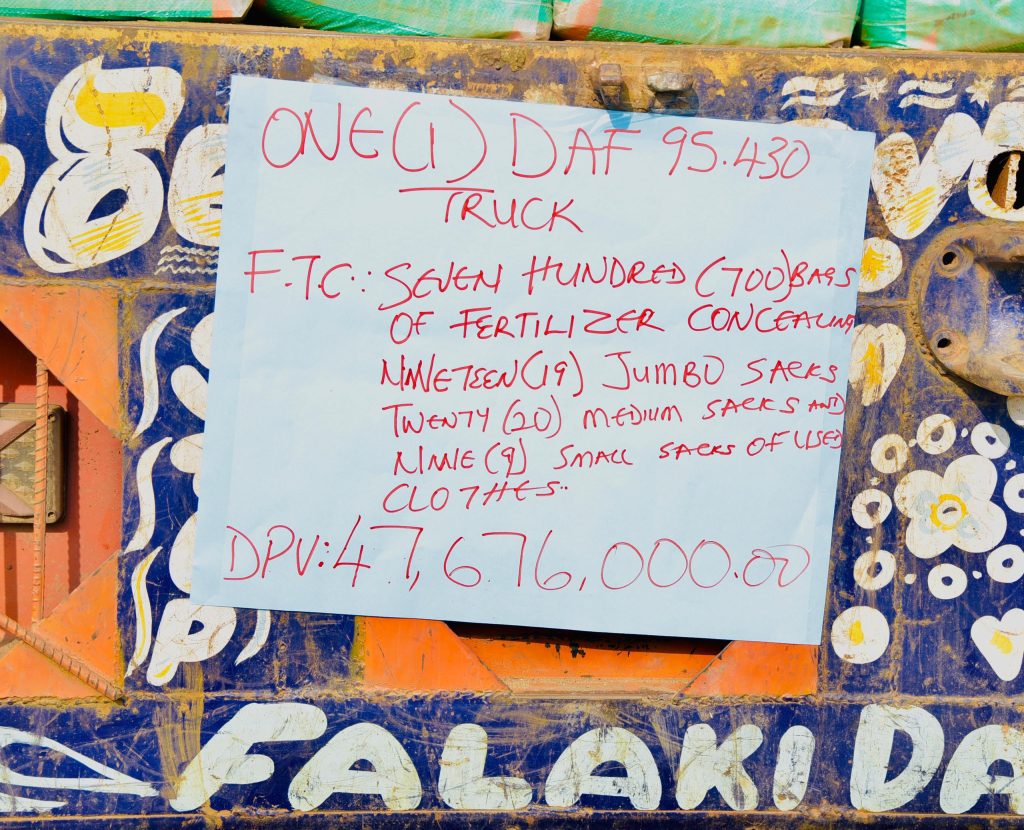 ONE (1) DAF 95.430
TRUCK
F.T.C:: SEVEN HUNDRED (700) BAGS
OF FERTILIZER CONCEALING
NINETEEN (19) JUMBO SACKS
TWENTY (20) MEDIUM SACKS AND
NINE (9) SMALL SACKS OF USED
CLOTHES..
DPV: 47,676,000.00
FALAKI DA